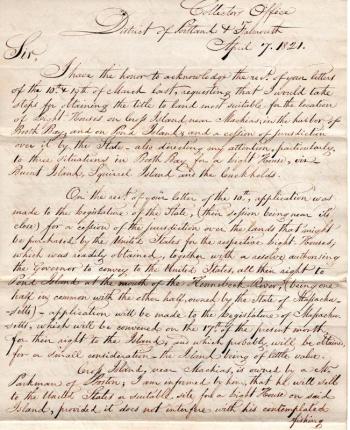 Collectors Office
District of Portland & Falmouth
April 7. 1821.
Sir,
I have the honor to acknowledge the rect. of your letters
of the 10th & 19th of March last, requesting that I would take
steps for obtaining the title to land most suitable for the location
of Light Houses on Cross Island near Machias, in the harbor of
Booth Bay, and on Pond Island; and a cession of jurisdiction
over it by the State, also directing my attention, particularly
to three situations in Booth Bay for a light House, viz
Burnt Island, Squirrel Island and the Cuckholds.
On the rect. of your letter of the 10th, application was
made to the Legislature of the State, (their session being near its
close) for a cession of the jurisdiction over the lands that might
be purchased by the United States for the respective light Houses,
which was readily obtained, together with a resolve authorising
the Governor to convey to the United States, all their right to
Pond Island at the mouth of the Kennebeck River, (being one
half in common with the other half, owned by the State of Massachu-
setts) - application will be made to the Legislature of Massachu-
setts, which will be convened on the 17th of the present month
for their right to the Island, and which probably will be obtained,
for a small consideration - the Island being of little value.
Cross Island, near Machias, is owned by a Mr.
Parkman of Boston; I am informed by him, that he will sell
to the United States a suitable site for a light House on said
Island, provided it does not interfere with his contemplated
fishing